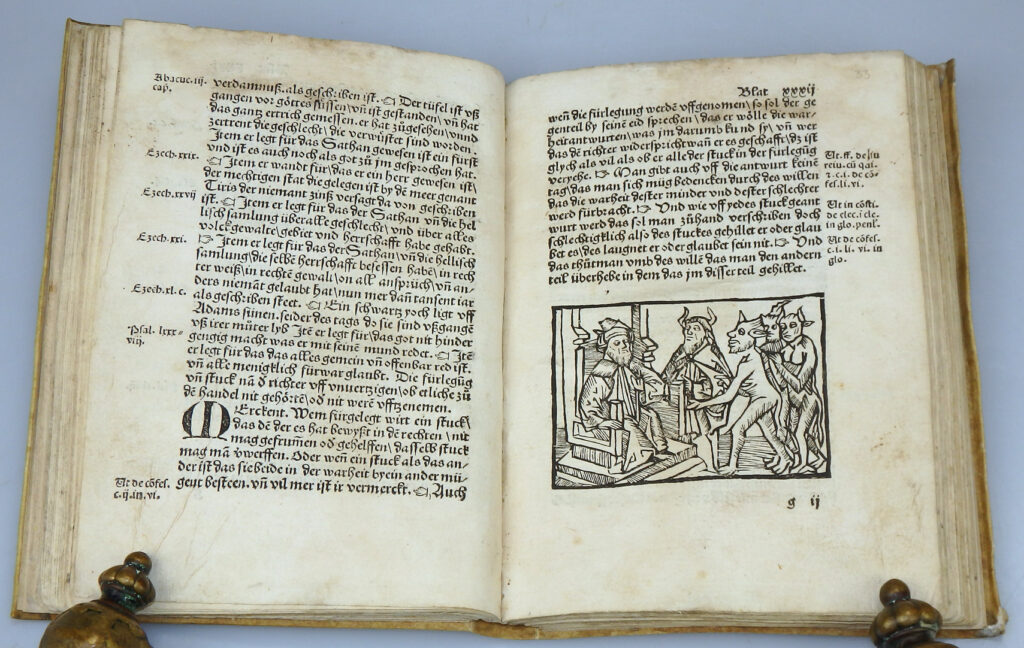 Abacuc. iij.
cap.
verdamnuß. als geschriben ist. Der tüfel ist vß
gangen vor gottes füssen/ vñ ist gestanden/ vñ hat
das gantz ertrich gemessen. er hat zůgesehen/ vnnd
zertrent die geschlecht/ die verwüstet sind worden.
Item er legt für das Sathan gewesen ist ein fürst
vnd ist es auch noch als got zů jm gesprochen hat.
Ezech. xxix.
Item er wandt für/ das er ein herr gewesen ist/
der mechtigen stat die gelegen ist by dē meer genant
Ezech. xxvij
Tiris der niemant zinß versagt da von geschriben
ist. Item er legt für das der Sathan vñ die hel
lisch samlung über alle geschlecht/ vnd über alles
volck gewalte/ gebiet vnd herrschafft habe gehabt.
Ezech. xxi.
Item er legt für das der Sathan/ vñ die hellisch
samlung/ die selbe herrschafft besessen habē/ in rech
ter weiß/ in rechtē gewalt/ on all ansprüch/ vñ an-
ders niemāt gelaubt hat/ nun mer dañ tausent iar
Ezech. xl. c.
als geschriben steet. Ein schwartz yoch ligt vff
Adams sünen. seider des tags do sie sind vßgangē
vß irer můter lyb Itē er legt für/ das got nit hinder
Psal. lxxx-
viij.
gengig macht was er mit seinē mund redet. Itē
er legt für das das alles gemein vñ offenbar red ist.
vñ alle menigklich für war glaubt. Die fürlegūg
vñ stuck nā d richter vff vnuertzigen/ ob etliche zů
dē handel nit gehörtē/ od nit werē vfftzenemen.
MErckent. Wem fürgelegt wirt ein stuck/
das dē der es hat bewyßt in dē rechten/ nit
mag gefrummen od gehelffen/ dasselb stuck
mag mā verwerffen. Oder weñ ein stuck als das an-
der ist das sie beide in der warheit by ein ander mü-
Ut de cōfes.
c. ij. in. vi.
gent besteen. vñ vil mer ist ir vermerckt. Auch
Blat xxxij
weñ die fürlegung werde vffgenomen/ so sol der ge
genteil by seinē eid sprechen/ das er wölle die war-
heit antwurten/ was jm darumb kund sy/ vñ wer
das dē richter widerspricht wañ er es geschafft/ dz ist
glych als vil als ob er alle der stuck in der fürlegūg
veryehe. Man gibt auch vff die antwurt keinē
tag/ das man sich müg bedencken durch des willen
das die warheit dester minder vnd dester schlechter
werd fürbracht. Vnd wie vff yedes stuck geant
wurt werd das sol man zůhand verschriben doch
schlechtigklich also des stuckes gehillet er oder glau
bet es/ des laugnet er oder glaubet sein nit. Vnd
das thůt man vmb des willē das man den andern
teil überhebe in dem das jm disser teil gehillet.
Ut in cōsti.
de elec. i cle.
in glo. penl.
Ut de cōfes.
c. i. li. vi. in
glo.
g ij